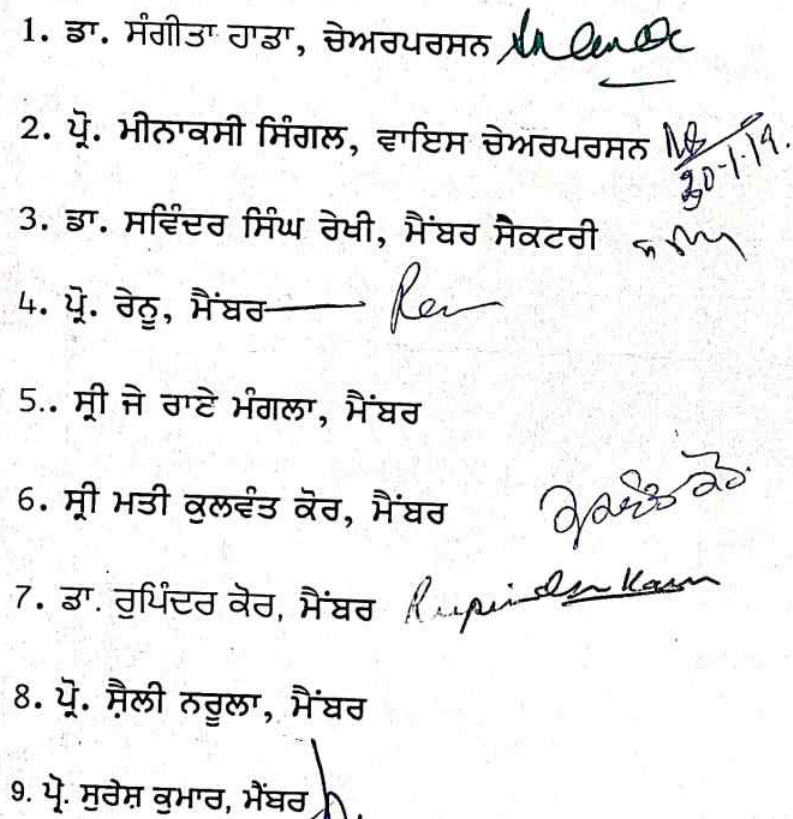 1. ਡਾ. ਸੰਗੀਤਾ ਹਾਡਾ, ਚੇਅਰਪਰਸਨ
2. ਪ੍ਰੋ. ਮੀਨਾਕਸੀ ਸਿੰਗਲ, ਵਾਇਸ ਚੇਅਰਪਰਸਨ
3. ਡਾ. ਸਵਿੰਦਰ ਸਿੰਘ ਰੇਖੀ, ਮੈਂਬਰ ਸੈਕਟਰੀ
4. ਪ੍ਰੋ. ਰੇਨੂ, ਮੈਂਬਰ
5.. ਸ੍ਰੀ ਜੇ ਰਾਣੇ ਮੰਗਲਾ, ਮੈਂਬਰ
6. ਸ੍ਰੀ ਮਤੀ ਕੁਲਵੰਤ ਕੋਰ, ਮੈਂਬਰ
7. ਡਾ. ਰੁਪਿੰਦਰ ਕੋਰ, ਮੈਂਬਰ Rupinder Kaur
8. ਪ੍ਰੋ. ਸ਼ੈਲੀ ਨਰੂਲਾ, ਮੈਂਬਰ
9. ਪ੍ਰੋ. ਸੁਰੇਸ਼ ਕੁਮਾਰ, ਮੈਂਬਰ